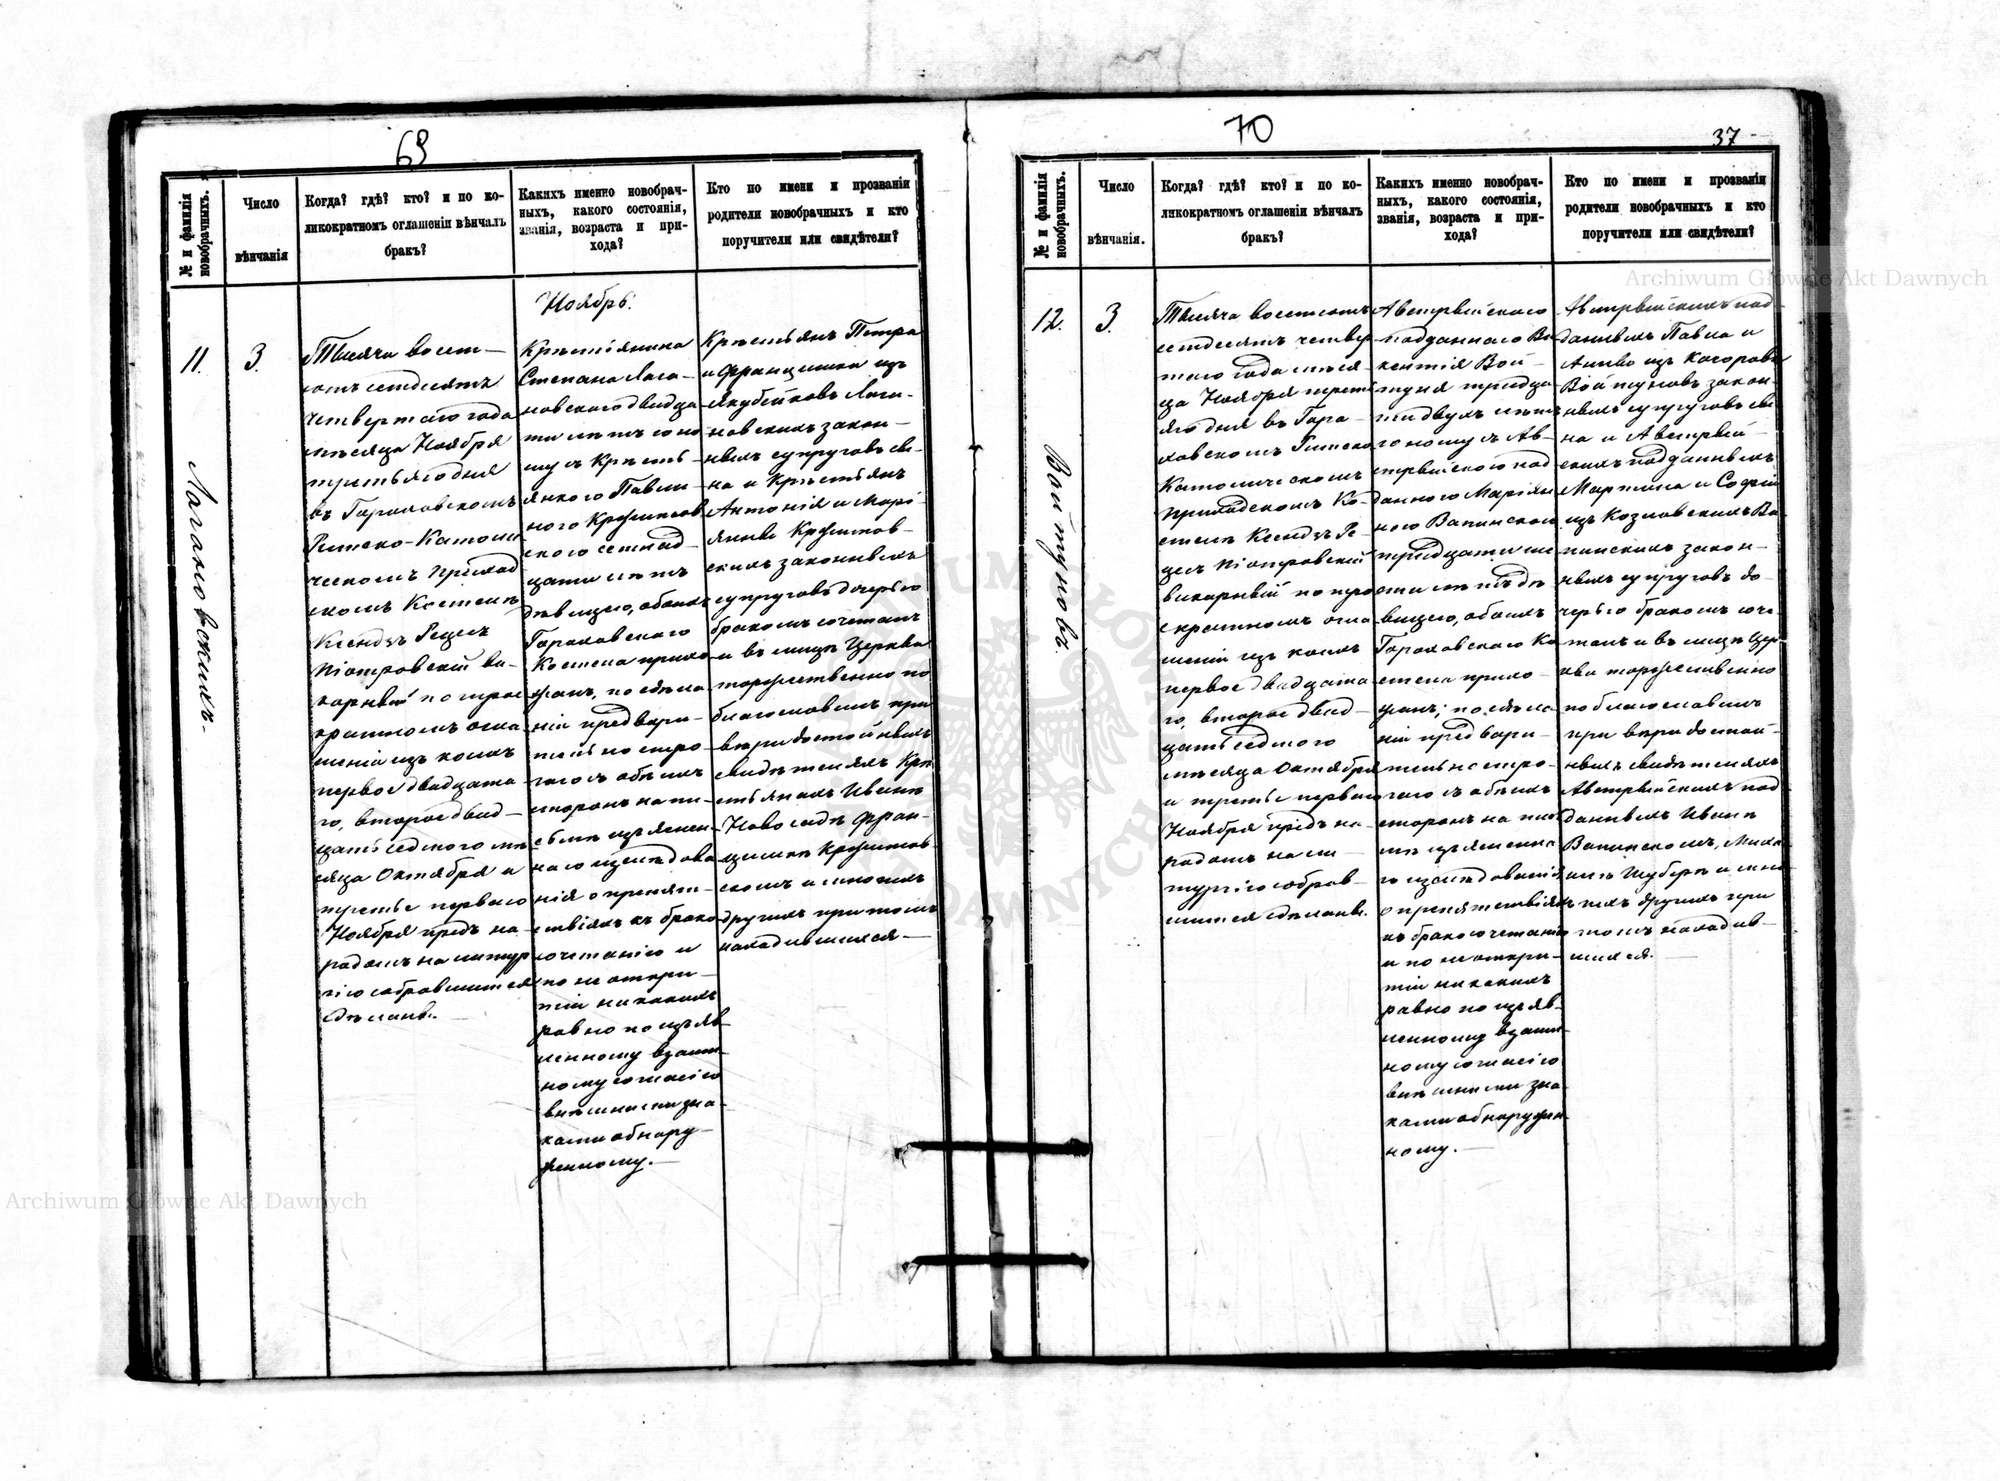 69
№ и фамилія новобрачныхъ.
Число вѣнчанія
Когда? гдѣ? кто? и по ко-
ликократномъ оглашеніи вѣнчалъ
бракъ?
Какихъ именно новобрач-
ныхъ, какого состоянія,
званія, возраста и при-
хода?
Кто по имени и прозваніи
родители новобрачныхъ и кто
поручители или свидѣтели?
Ноябрь.
11.
Лагановскихъ
3.
Тысяча восем-
сотъ семдесятъ
четвертаго года
мѣсяца Ноября
третьяго дня
въ Гороховскомъ
Римско-Католи
ческомъ Приход
скомъ Костелѣ
Ксендзъ
Піотровскій ви-
карный по трое
кратномъ огла
шеніи изъ коихъ
первое двадцата
го, второе двад-
цать седмого мѣ
сяца Октября и
третье перваго
Ноября предъ на
родомъ на литур
гію собравшимся
сдѣланы.
Крѣстіянина
Степана Лага-
новскаго двадца
ти лѣтъ юно
шу съ Крѣстъ
янкою Павли
ного Кружиков
скаго семнад
цати лѣтъ
дѣвицею, обоихъ
Гороховского
Костела прихо
жан, по сдѣла
ніи предвари-
тельно стро
гаго съ обѣихъ
сторонъ на пи-
сьмѣ изъяснен-
наго изслѣдова
нія о препят-
ствіяхъ къ брако
сочетанію и
по не откры-
тіи никакихъ
равно по изъяв-
ленному взаим-
ному согласію
внѣшними зна-
ками обнару-
женному.
Крѣстьянъ Петра
и Францишки изъ
Якубьяковъ Лага-
новскихъ закон-
ныхъ супруговъ сы-
на и Крѣстьянъ
Антонія и Мары-
янны Кружиков-
скихъ законныхъ
супруговъ дочерью
бракомъ сочеталъ
и въ лицѣ Церкви
торжественно по
благословилъ при
вѣри достойныхъ
свидѣтеляхъ Крѣ
стьянахъ Иванѣ
Новосадѣ Фран-
цишкѣ Кружиков
скомъ и многихъ
другихъ при томъ
находившихся
70
37
№ и фамилія новобрачныхъ.
Число вѣнчанія.
Когда? гдѣ? кто? и по ко-
ликократномъ оглашеніи вѣнчалъ
бракъ?
Какихъ именно новобрач-
ныхъ, какого состоянія,
званія, возраста и при-
хода?
Кто по имени и прозваніи
родители новобрачныхъ и кто
поручители или свидѣтели?
12.
Войтуновъ
3.
Тысяча восемсотъ
семдесятъ четвер
таго года мѣся
ца Ноября треть
яго дня въ Горо
ховскомъ Римско
Католическомъ
Приходскомъ Ко-
стелѣ Ксендзъ
Піотровскій
викарный по трое
кратномъ огла
шеніи изъ коихъ
первое двадцата
го, второе двад-
цать седмого
мѣсяца Октября
и третье перваго
Ноября предъ на
родомъ на ли-
тургію собрав-
шимся сдѣланы.
Австрыйского
подданного Ви
кентія Вой-
туня тридца
ти двухъ лѣтъ
юношу съ Ав-
стрыйского под
данного Маріян
ною Вапинскою
тридцати ше
сти лѣтъ дѣ
вицею, обоихъ
Гороховского Ко
стела прихо-
жан; по сдѣла
ніи предвари-
тельно стро-
гаго съ обѣихъ
сторонъ на пись
мѣ изъясненна
го изслѣдованія
о препятствіяхъ
къ бракосочетанію
и по не откры-
тіи никакихъ
равно по изъяв-
ленному взаим-
ному согласію
внѣшними зна
ками обнаружен
ному.
Австрыйскихъ под-
данныхъ Павла и
Анны изъ
Войтуновъ закон-
ныхъ супруговъ сы
на и Австрый-
скихъ подданныхъ
Мартина и Софіи
изъ Козловскихъ Ва
пинскихъ закон-
ныхъ супруговъ до-
черью бракомъ соче
талъ и въ лицѣ Цер
кви торжественно
поблагословилъ
при вѣри достой-
ныхъ свидѣтеляхъ
Австрыйскихъ под
данныхъ Иванѣ
Вапинскомъ, Миха
илѣ Шуберѣ и мно
гихъ другихъ при
томъ находив-
шихся.
Archiwum Główne Akt Dawnych
Archiwum Główne Akt Dawnych